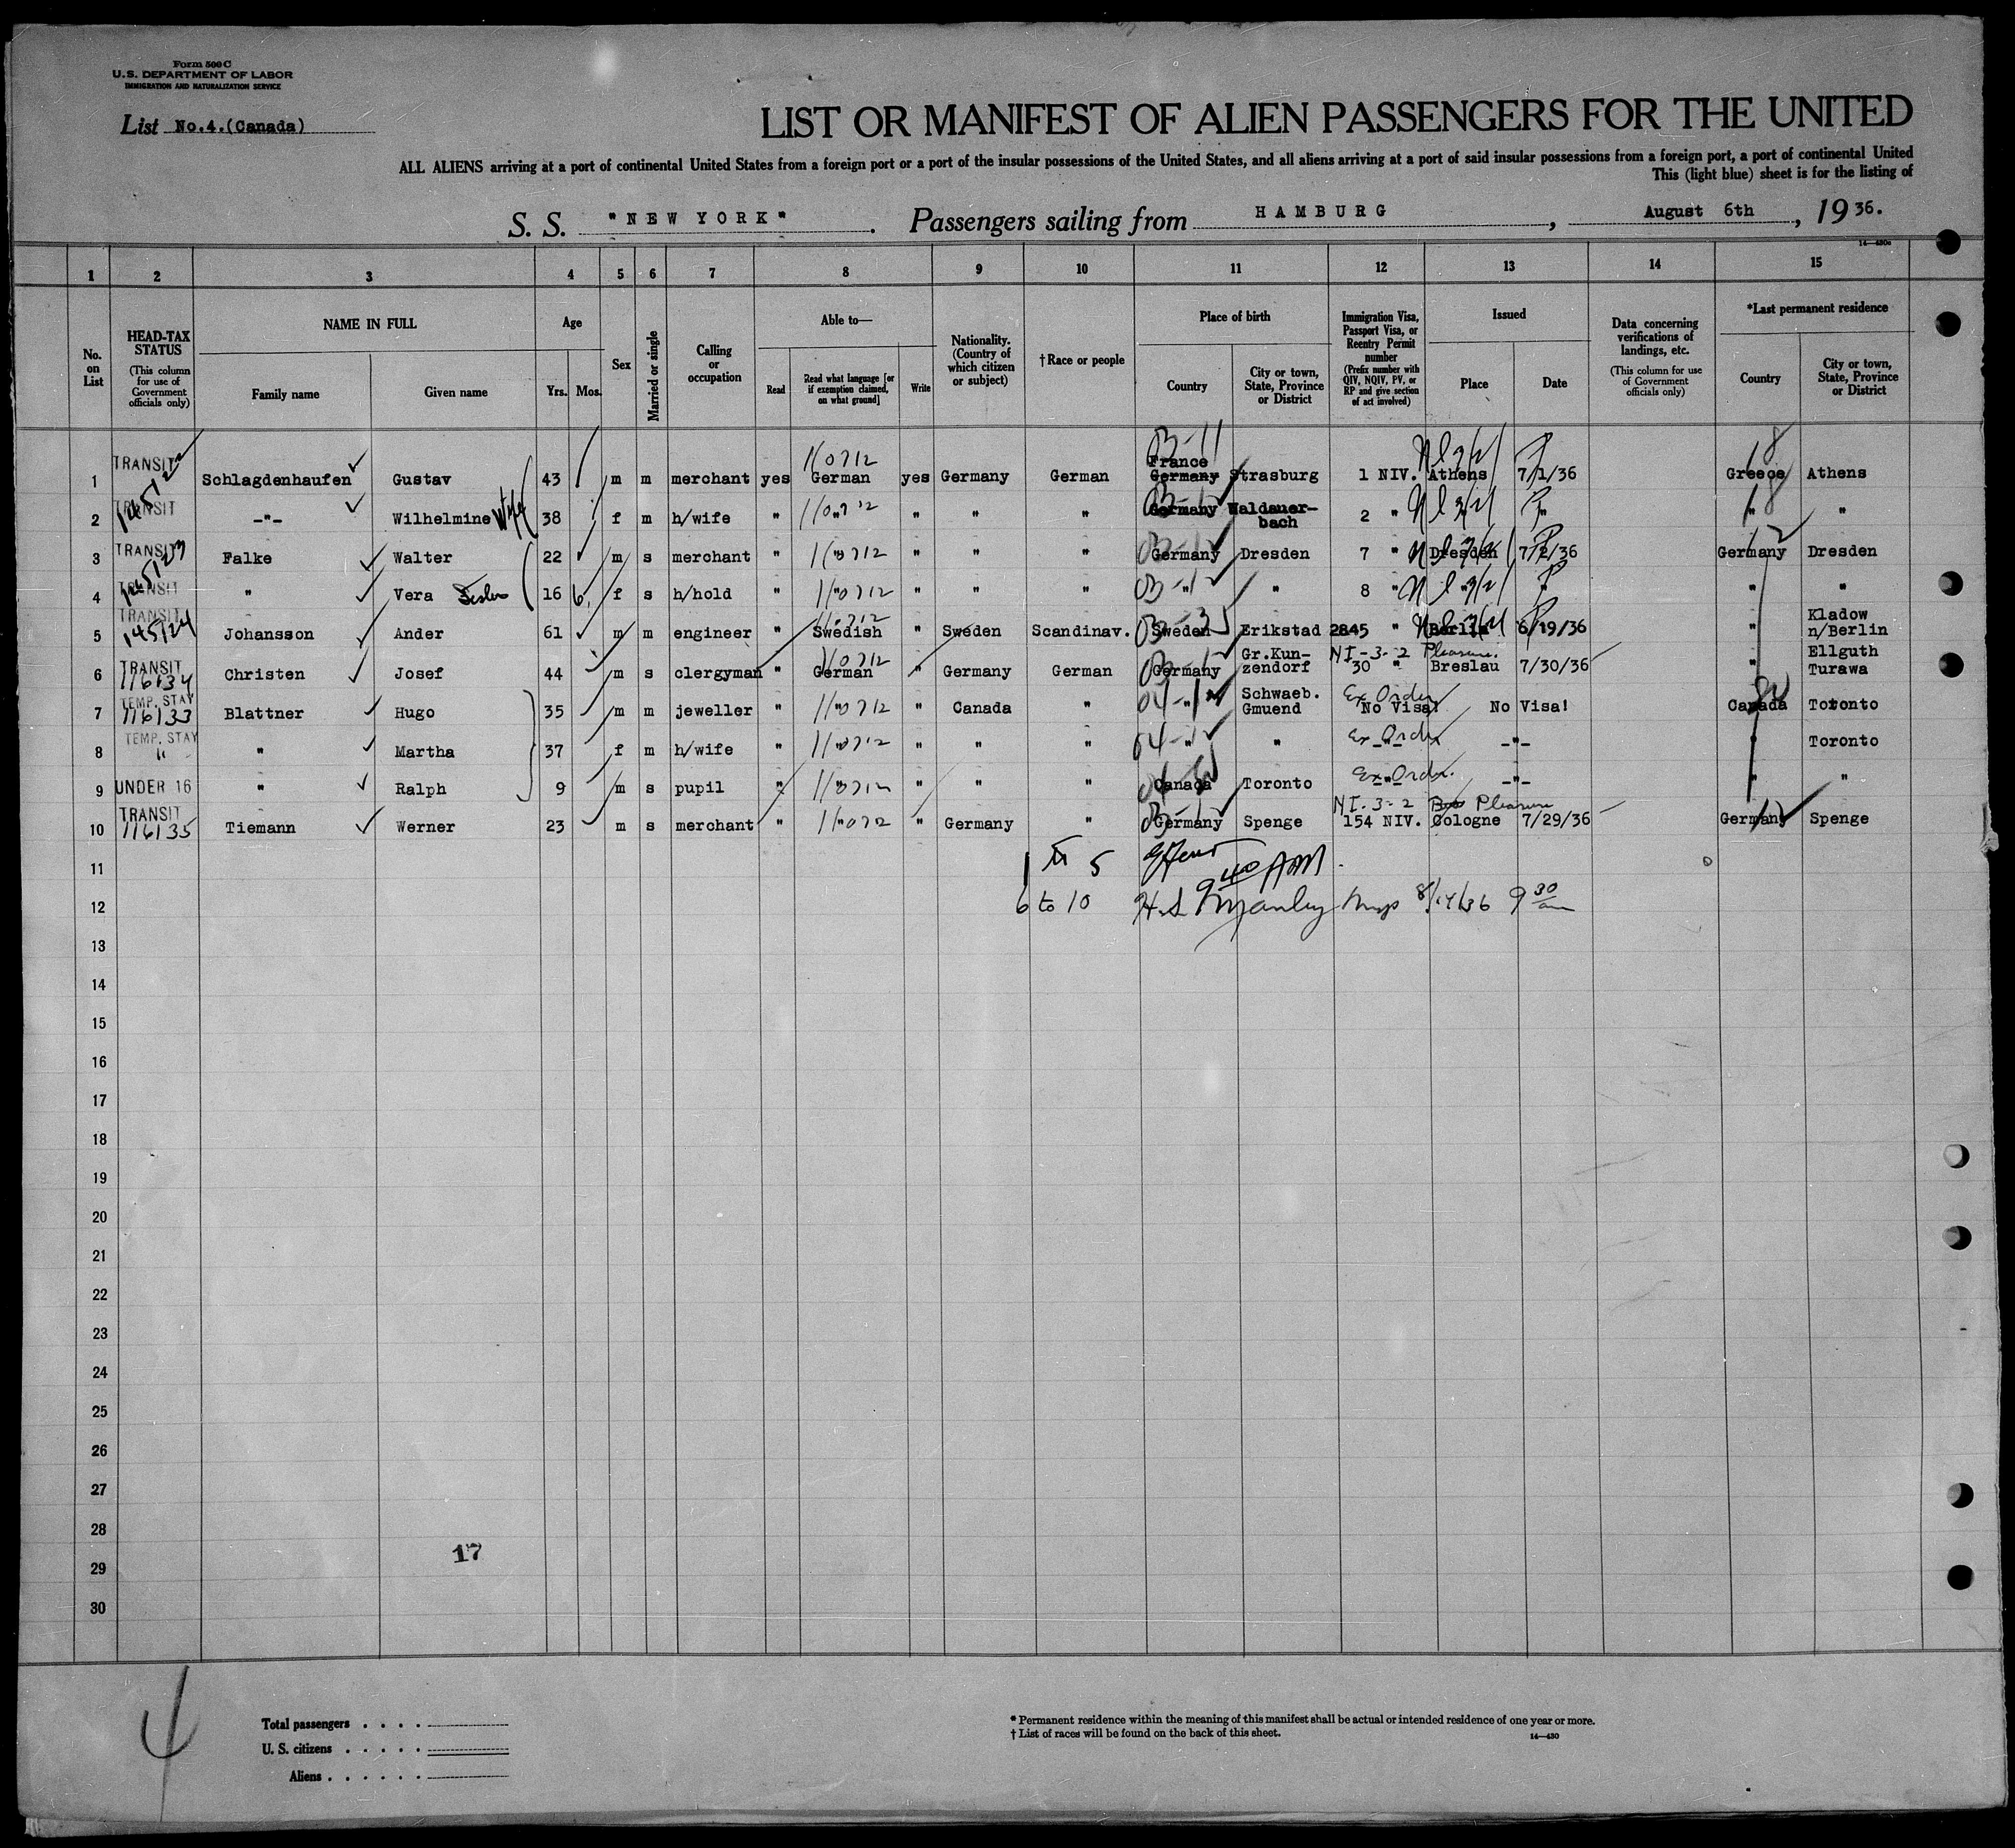 Form 500 C
U.S. DEPARTMENT OF LABOR
IMMIGRATION AND NATURALIZATION SERVICE
List No.4.(Canada)
LIST OR MANIFEST OF ALIEN PASSENGERS FOR THE UNITED
ALL ALIENS arriving at a port of continental United States from a foreign port or a port of the insular possessions of the United States, and all aliens arriving at a port of said insular possessions from a foreign port, a port of continental United
This (light blue) sheet is for the listing of
S. S. "NEW YORK". Passengers sailing from HAMBURG, August 6th, 1936.
14—430a
1 2 3 4 5 6 7 8 9 10 11 12 13 14 15
No. on List
HEAD-TAX STATUS (This column for use of Government officials only)
NAME IN FULL
Family name Given name
Age
Yrs. Mos.
Sex
Married or single
Calling or occupation
Able to—
Read Read what language [or if exemption claimed, on what ground] Write
Nationality. (Country of which citizen or subject)
†Race or people
Place of birth
Country City or town, State, Province or District
Immigration Visa, Passport Visa, or Reentry Permit number (Prefix number with QIV, NQIV, PV, or RP and give section of act involved)
Issued
Place Date
Data concerning verifications of landings, etc. (This column for use of Government officials only)
*Last permanent residence
Country City or town, State, Province or District
1 TRANSIT 145122 Schlagdenhaufen Gustav 43 m m merchant yes German yes Germany German France Germany Strasburg 1 NIV. Athens 7/1/36 Greece Athens
2 TRANSIT -"- Wilhelmine Wife 38 f m h/wife " " " " " Germany Waldauer-bach 2 " " " " "
3 TRANSIT 145123 Falke Walter 22 m s merchant " " " " " Germany Dresden 7 " Dresden 7/2/36 Germany Dresden
4 TRANSIT " Vera Sister 16 6 f s h/hold " " " " " " " 8 " " " " "
5 TRANSIT 145124 Johansson Ander 61 m m engineer " Swedish " Sweden Scandinav. Sweden Erikstad 2845 " Berlin 6/19/36 " Kladow n/Berlin
6 TRANSIT 116134 Christen Josef 44 m s clergyman " German " Germany German Germany Gr.Kun-zendorf NI-3-2 Pleasure. 30 " Breslau 7/30/36 " Ellguth Turawa
7 TEMP. STAY 116133 Blattner Hugo 35 m m jeweller " " " Canada " " Schwaeb. Gmuend Ex Order No Visa! No Visa! Canada Toronto
8 TEMP. STAY " " Martha 37 f m h/wife " " " " " " " Ex Order -"- -"- " Toronto
9 UNDER 16 " Ralph 9 m s pupil " " " " " Canada Toronto Ex Order. -"- -"- " "
10 TRANSIT 116135 Tiemann Werner 23 m s merchant " " " Germany " Germany Spenge NI-3-2 Pleasure 154 NIV. Cologne 7/29/36 Germany Spenge
11 1 to 5 9 40 AM
12 6 to 10 H.S. Manley Insp 8/14/36 9 30 am
13
14
15
16
17
18
19
20
21
22
23
24
25
26
27
28
17
29
30
4
Total passengers
U. S. citizens
Aliens
* Permanent residence within the meaning of this manifest shall be actual or intended residence of one year or more.
† List of races will be found on the back of this sheet.
14—430